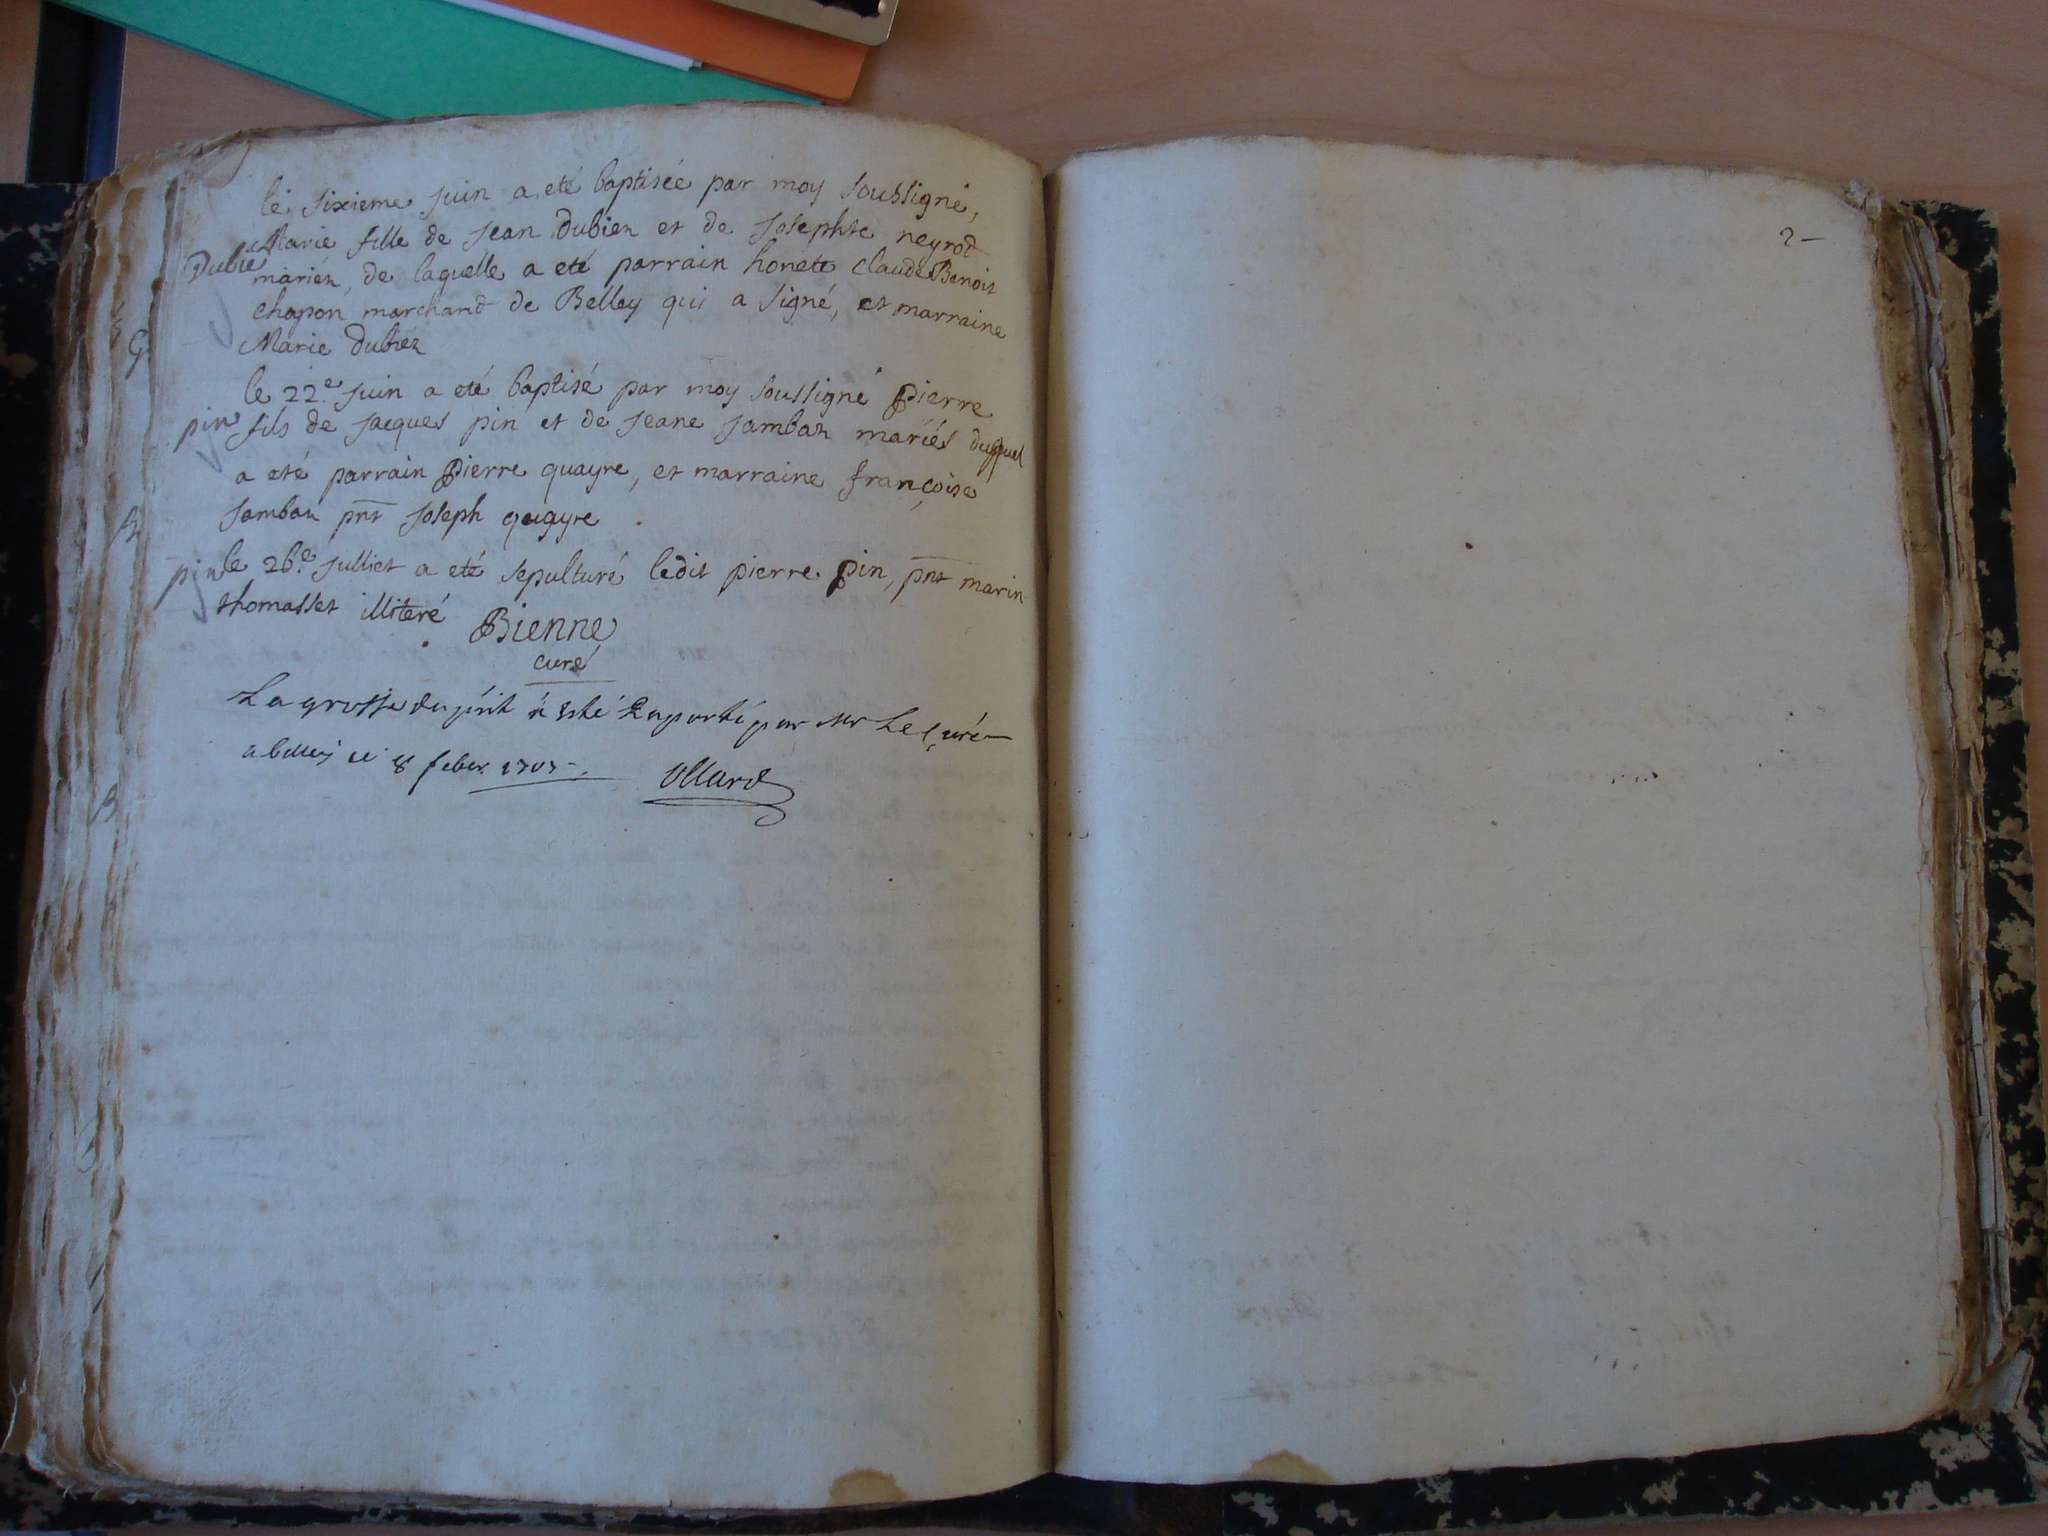 le sixieme juin a eté baptisée par moy soubsigné,
Marie fille de jean Dubiez et de josephte neyrod
Dubie
mariéz, de laquelle a eté parrain honete claude Benoit
chapon marchand de Belley qui a signé, et marraine
Marie dubiez
le 22e. juin a eté baptisé par moy soussigné Pierre
pin fils de jacques pin et de jeane jambaz mariés duquel
a eté parrain Pierre quayre, et marraine françoise
jambaz pnt joseph quayre
pin le 26e. julliet a eté sepulturé ledit pierre pin, pnt marin
thomasset illiteré Bienne
curé
La grosse du pnt a esté Raporté par Mr Le Curé
a belley ce 8 feber 1707
ollard
2